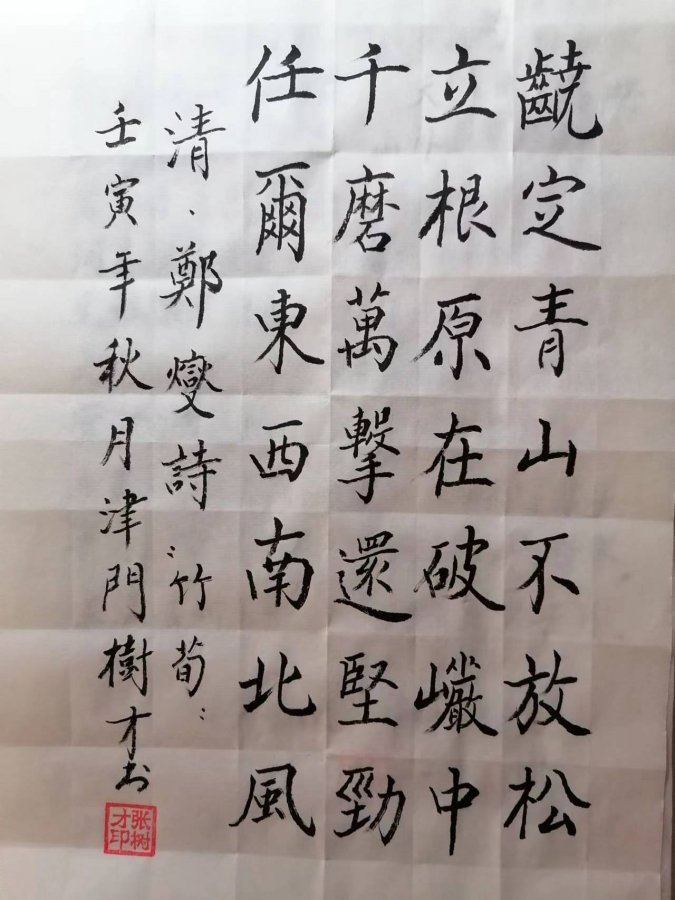 䶧定青山不放松
立根原在破巖中
千磨萬擊還堅勁
任爾東西南北風
清、鄭燮詩〝竹荀〞
壬寅年秋月津門樹才书
张树才印